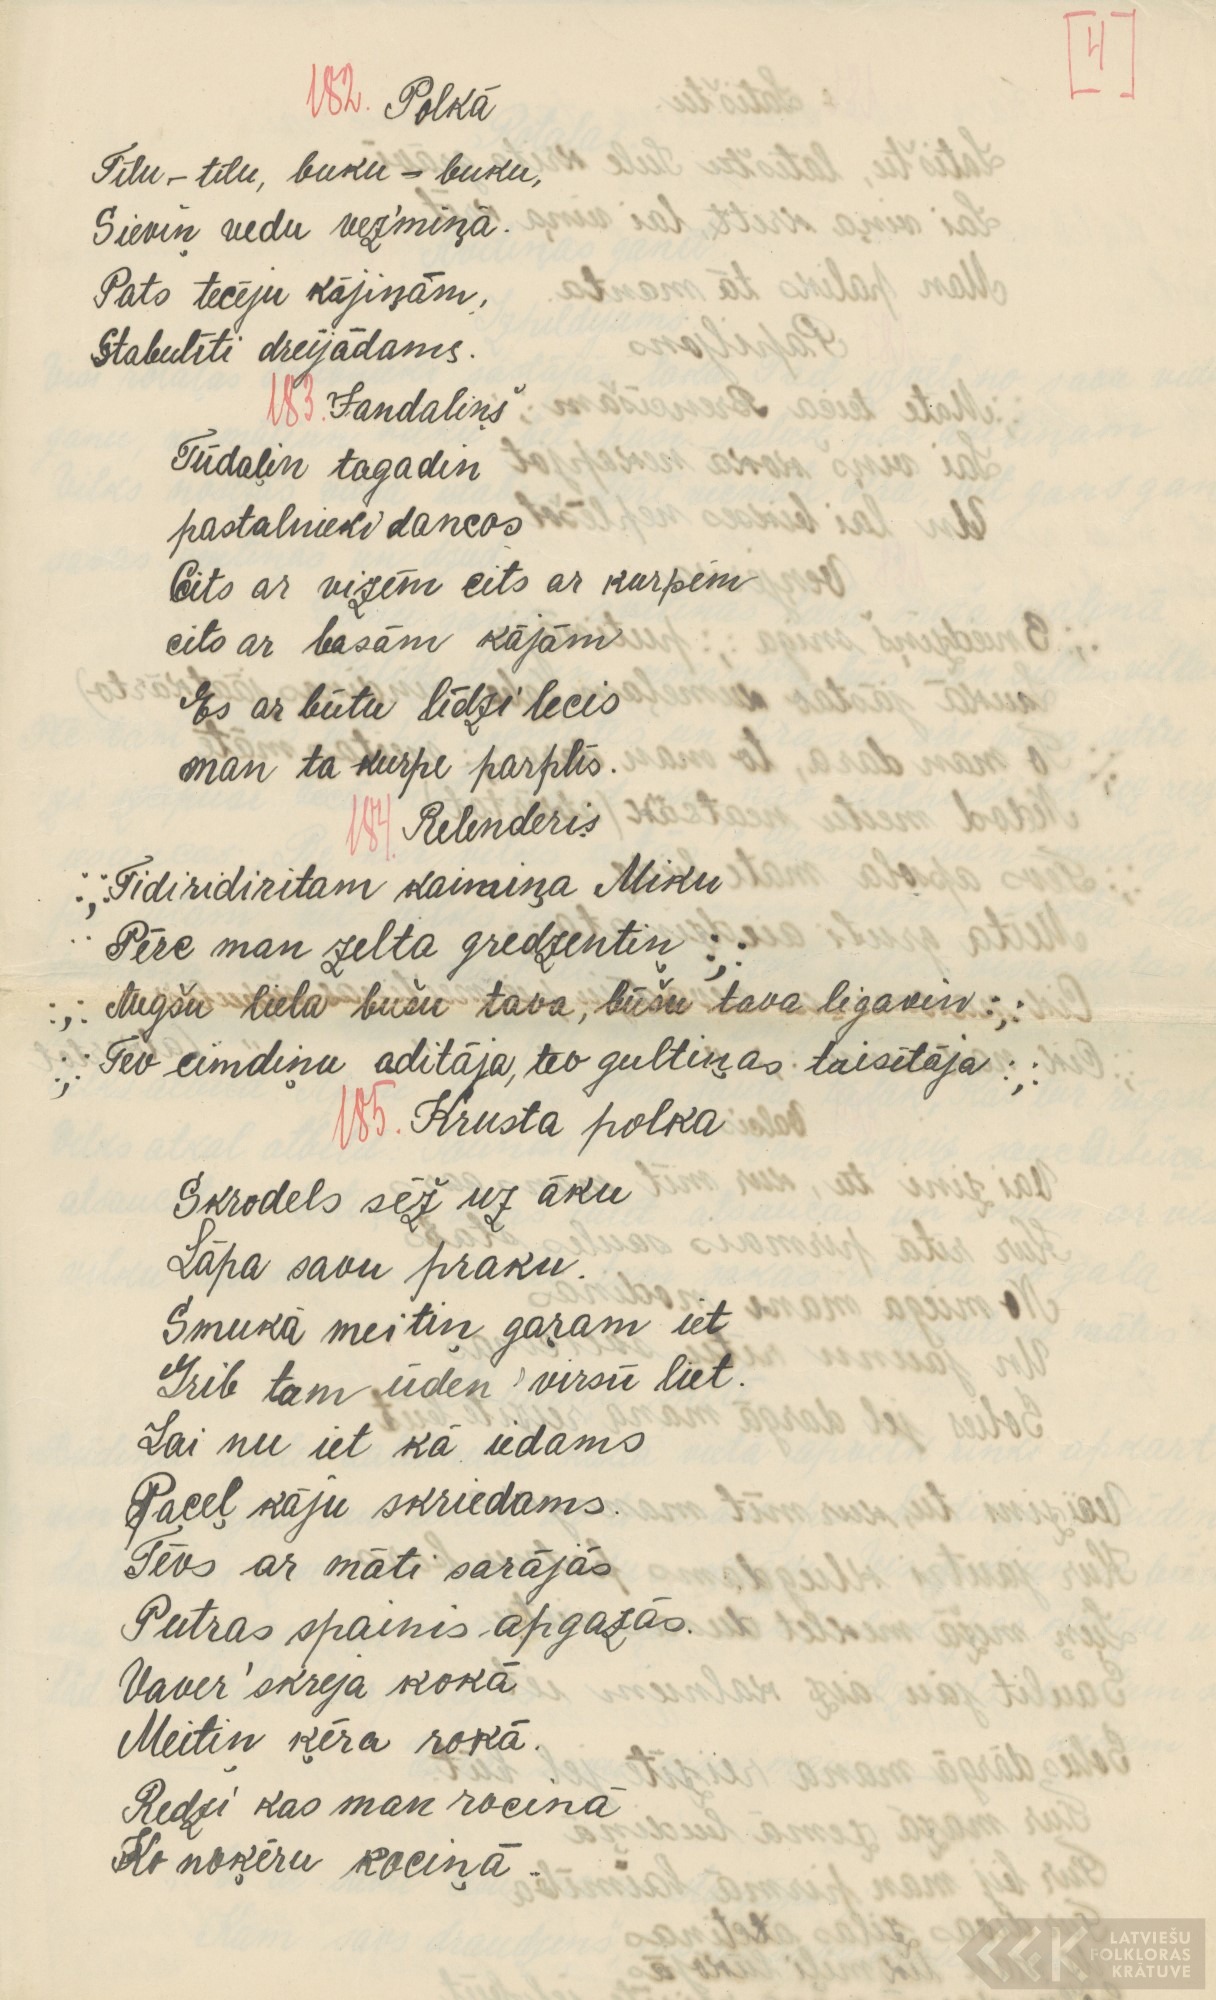 [4]
182. Polkā
Tilu-tilu, buku-buku,
Sieviņ vedu vez'miņā.
Pats tecēju kājiņām,
Stabulīti dreijādams.
183. Jandaliņš
Tūdaļin tagadin
pastalnieki dancos
Cits ar vizēm cits ar kurpēm
cits ar basām kājām
Es ar būtu līdzi lecis
man ta kurpe parplīs.
184. Relenderis
:,: Tidiridiritam kaimiņa Miku
Pērc man zelta gredzentiņ :,:
:,: Augšu liela bušu tava, būšu tava ligavin :,:
:,: Tev cimdiņu aditāja, tev gultiņas taisitāja :,:
185. Krusta polka
Skrodels sēž uz āku
Lāpa savu praku.
Smukā meitiņ gaŗam iet
Grib tam ūden' virsū liet.
Lai nu iet kā iedams
Paceļ kāju skriedams.
Tēvs ar māti sarājās
Putras spainis apgazās.
Vaver' skreja kokā
Meitiņ ķēra rokā.
Redzi kas man rocinā
Ko noķēru kociņā.
LATVIEŠU
FOLKLORAS
KRĀTUVE